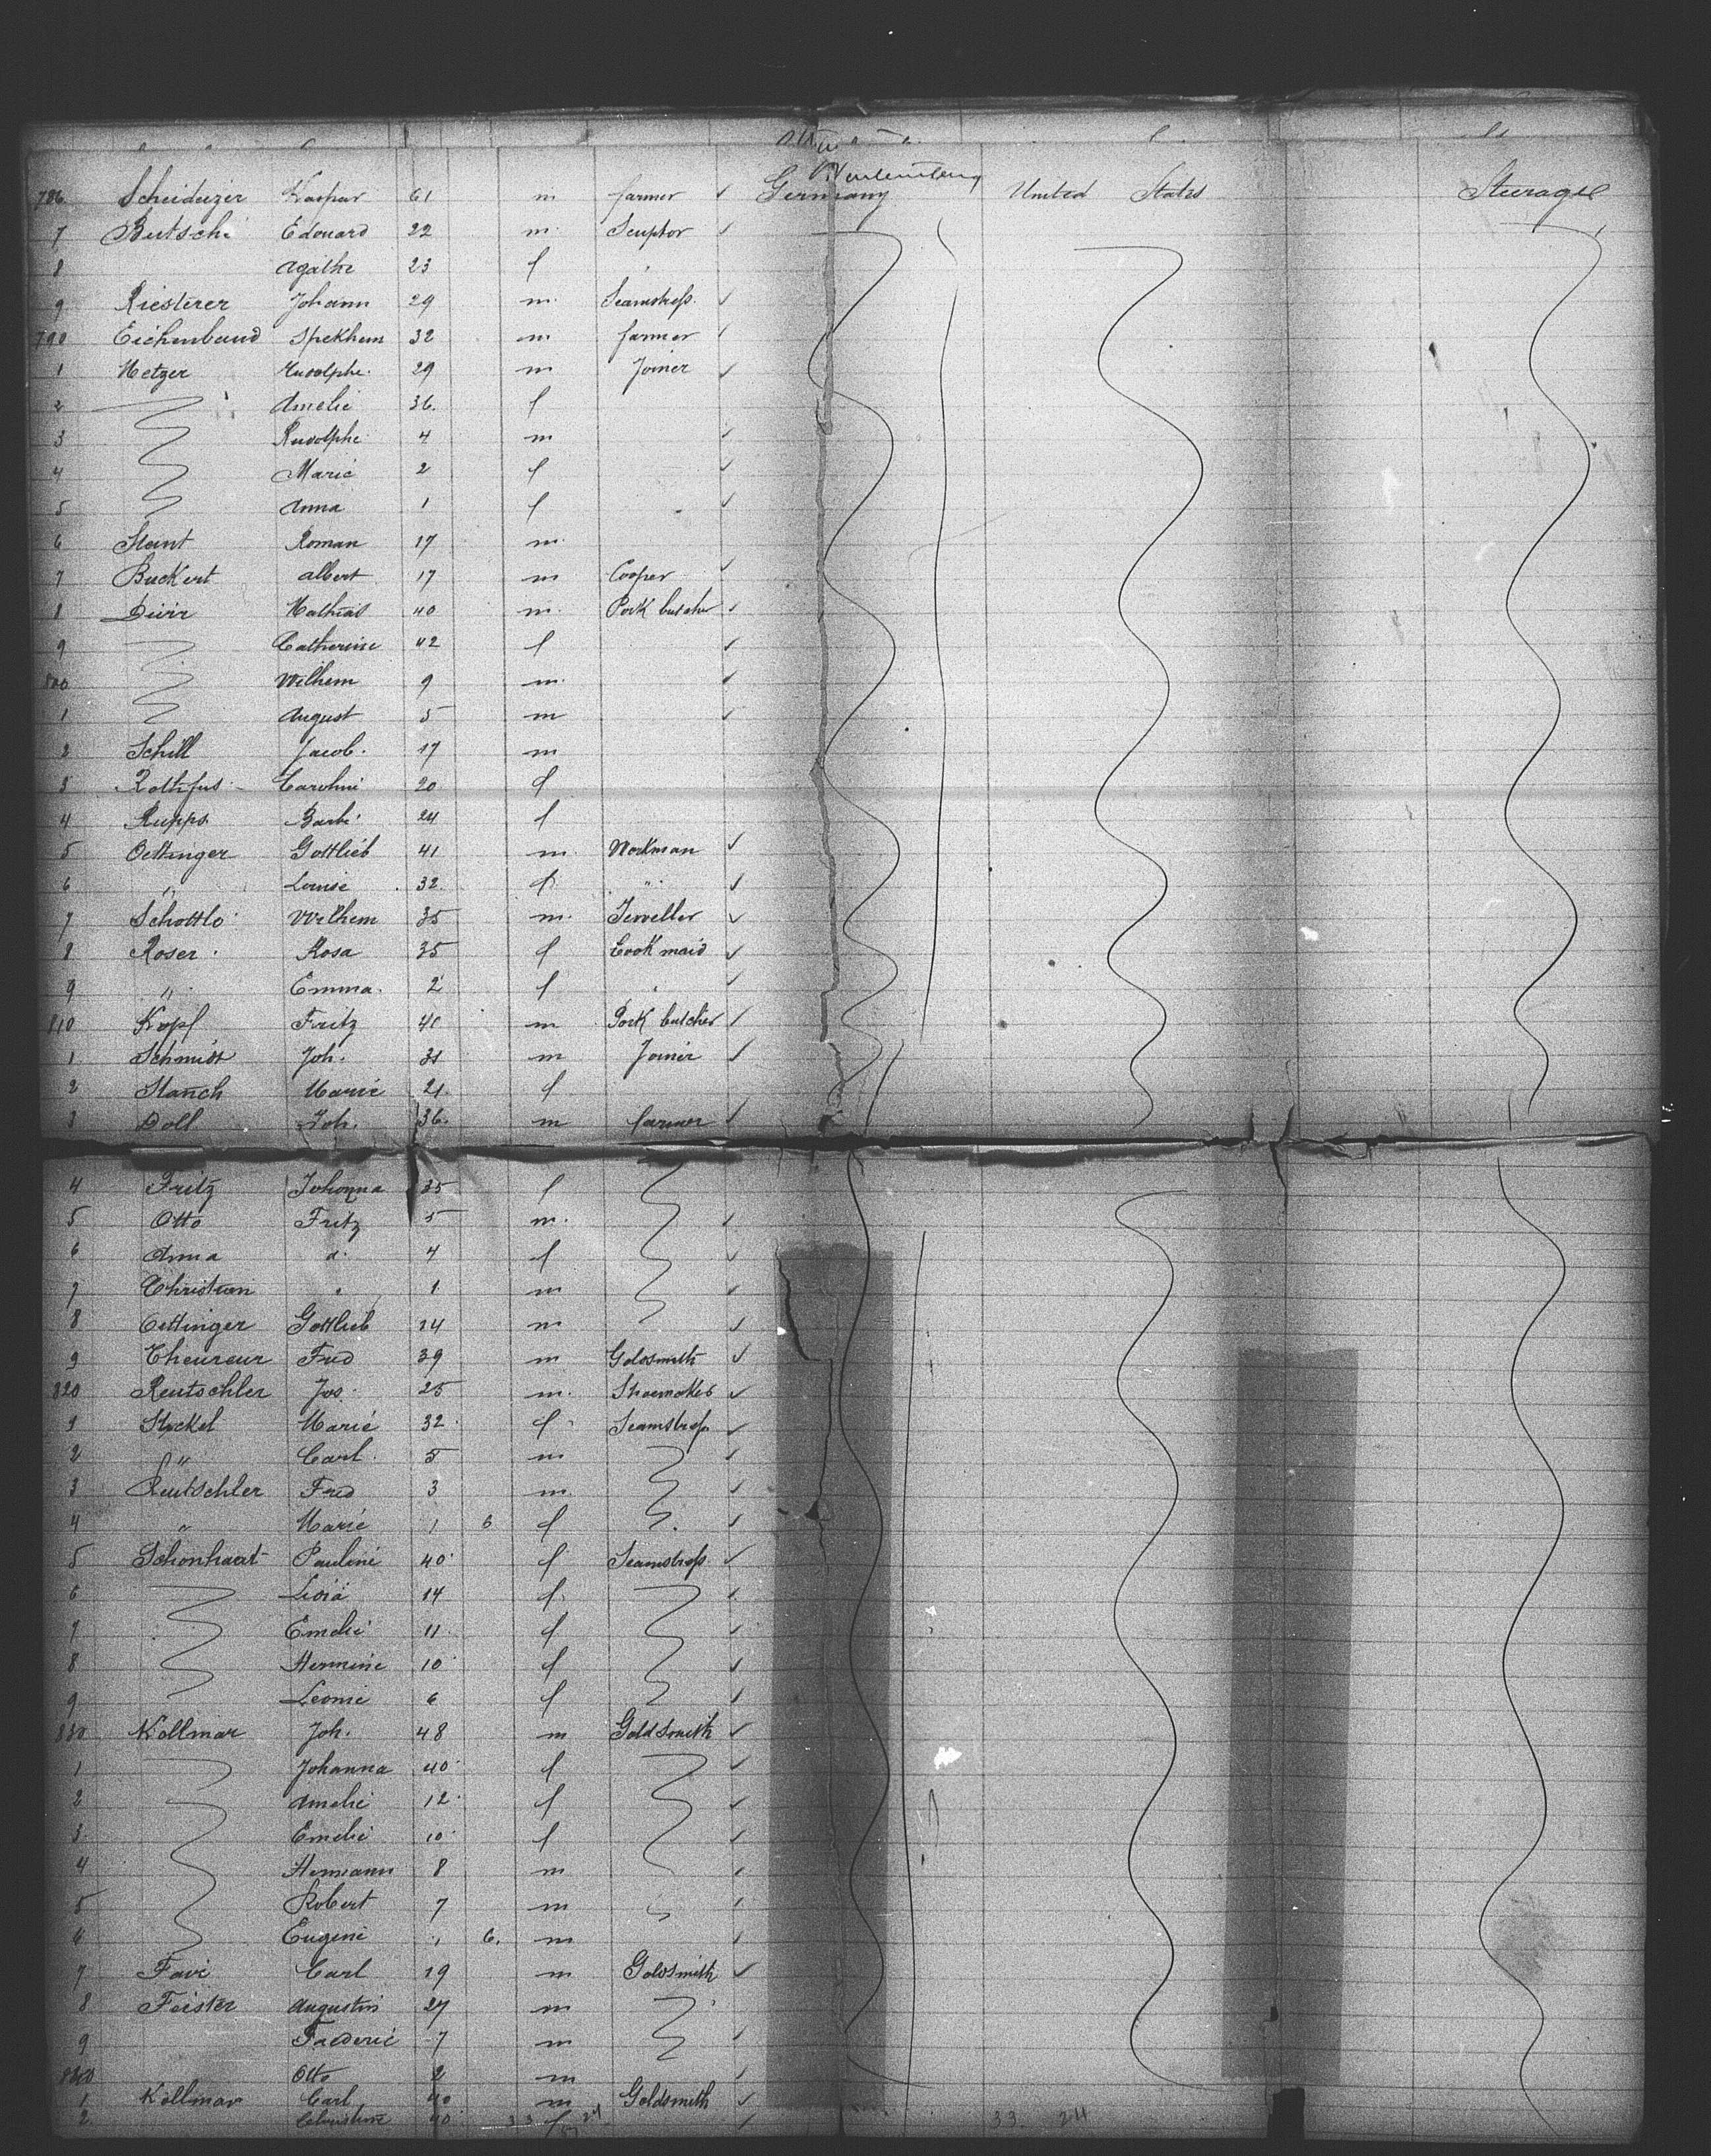 786 Scheidegger Kaspar 61 m farmer Germany United States Steerage
7 Butschi Edouard 22 m Sculptor
8 Agathe 23 f "
9 Riesterer Johann 29 m Seamstress
790 Eichenbaud 32 m farmer
1 Metzger Rudolphe 29 m Joiner
2 Amelie 36 f
3 Rudolphe 4 m
4 Marie 2 f
5 Anna 1 f
6 Roman 17 m
7 Buckert Albert 17 m Cooper
8 Dürr Mathias 40 m Pork butcher
9 Catherine 42 f
800 Wilhem 9 m
1 August 5 m
2 Schill Jacob 17 m
3 Rothfus Caroline 20 f
4 Rupps Barb. 24 f
5 Oettinger Gottlieb 41 m Workman
6 " Louise 32 f "
7 Schottlo Wilhem 35 m Jeweller
8 Roser Rosa 35 f Cook maid
9 " Emma 2 f "
810 Kopf Fritz 40 m Pork butcher
1 Schmidt Joh. 31 m Joiner
2 Marie 21 f
3 Doll Joh. 36 m farmer
4 Fritz Johanna 35 f
5 Otto Fritz 5 m
6 Anna d. 4 f
7 Christian " 1 m
8 Oettinger Gottlieb 14 m
9 Theureur Fred 39 m Goldsmith
820 Reutschler Jos. 25 m Shoemaker
1 Marie 32 f Seamstress
2 " Carl 5 m
3 Reutschler Fred 3 m
4 " Marie 1 6 f
5 Schonhaart Pauline 40 f Seamstress
6 14 f
7 Emelie 11 f
8 Hermine 10 f
9 Leonie 6 f
830 Kollmar Joh. 48 m Goldsmith
1 Johanna 40 f
2 Amelie 12 f
3 Emelie 10 f
4 Hermann 8 m
5 Robert 7 m
6 Eugene 1 6. m
7 Favi Carl 19 m Goldsmith
8 Feister Augustin 27 m
9 Frederic 7 m
840 Otto 2 m
1 Kollmar Carl 40 m Goldsmith
2 Christine 40 f 33 24